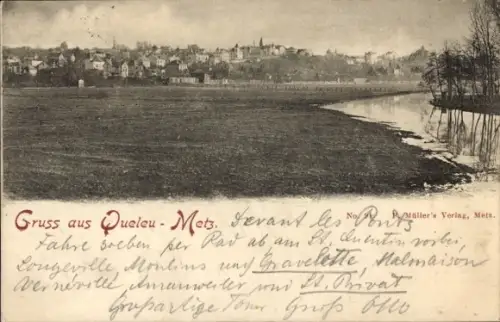 Gruss aus Queleu - Metz. Devant les Ponts
No. P. Müller's Verlag, Metz.
Fahre soeben per Rad ab am St. Quentin vorbei,
Longeville, Moulins und Gravelotte, Malmaison
Vernéville, von St. Privat
Großartige Tour. Gruß Otto